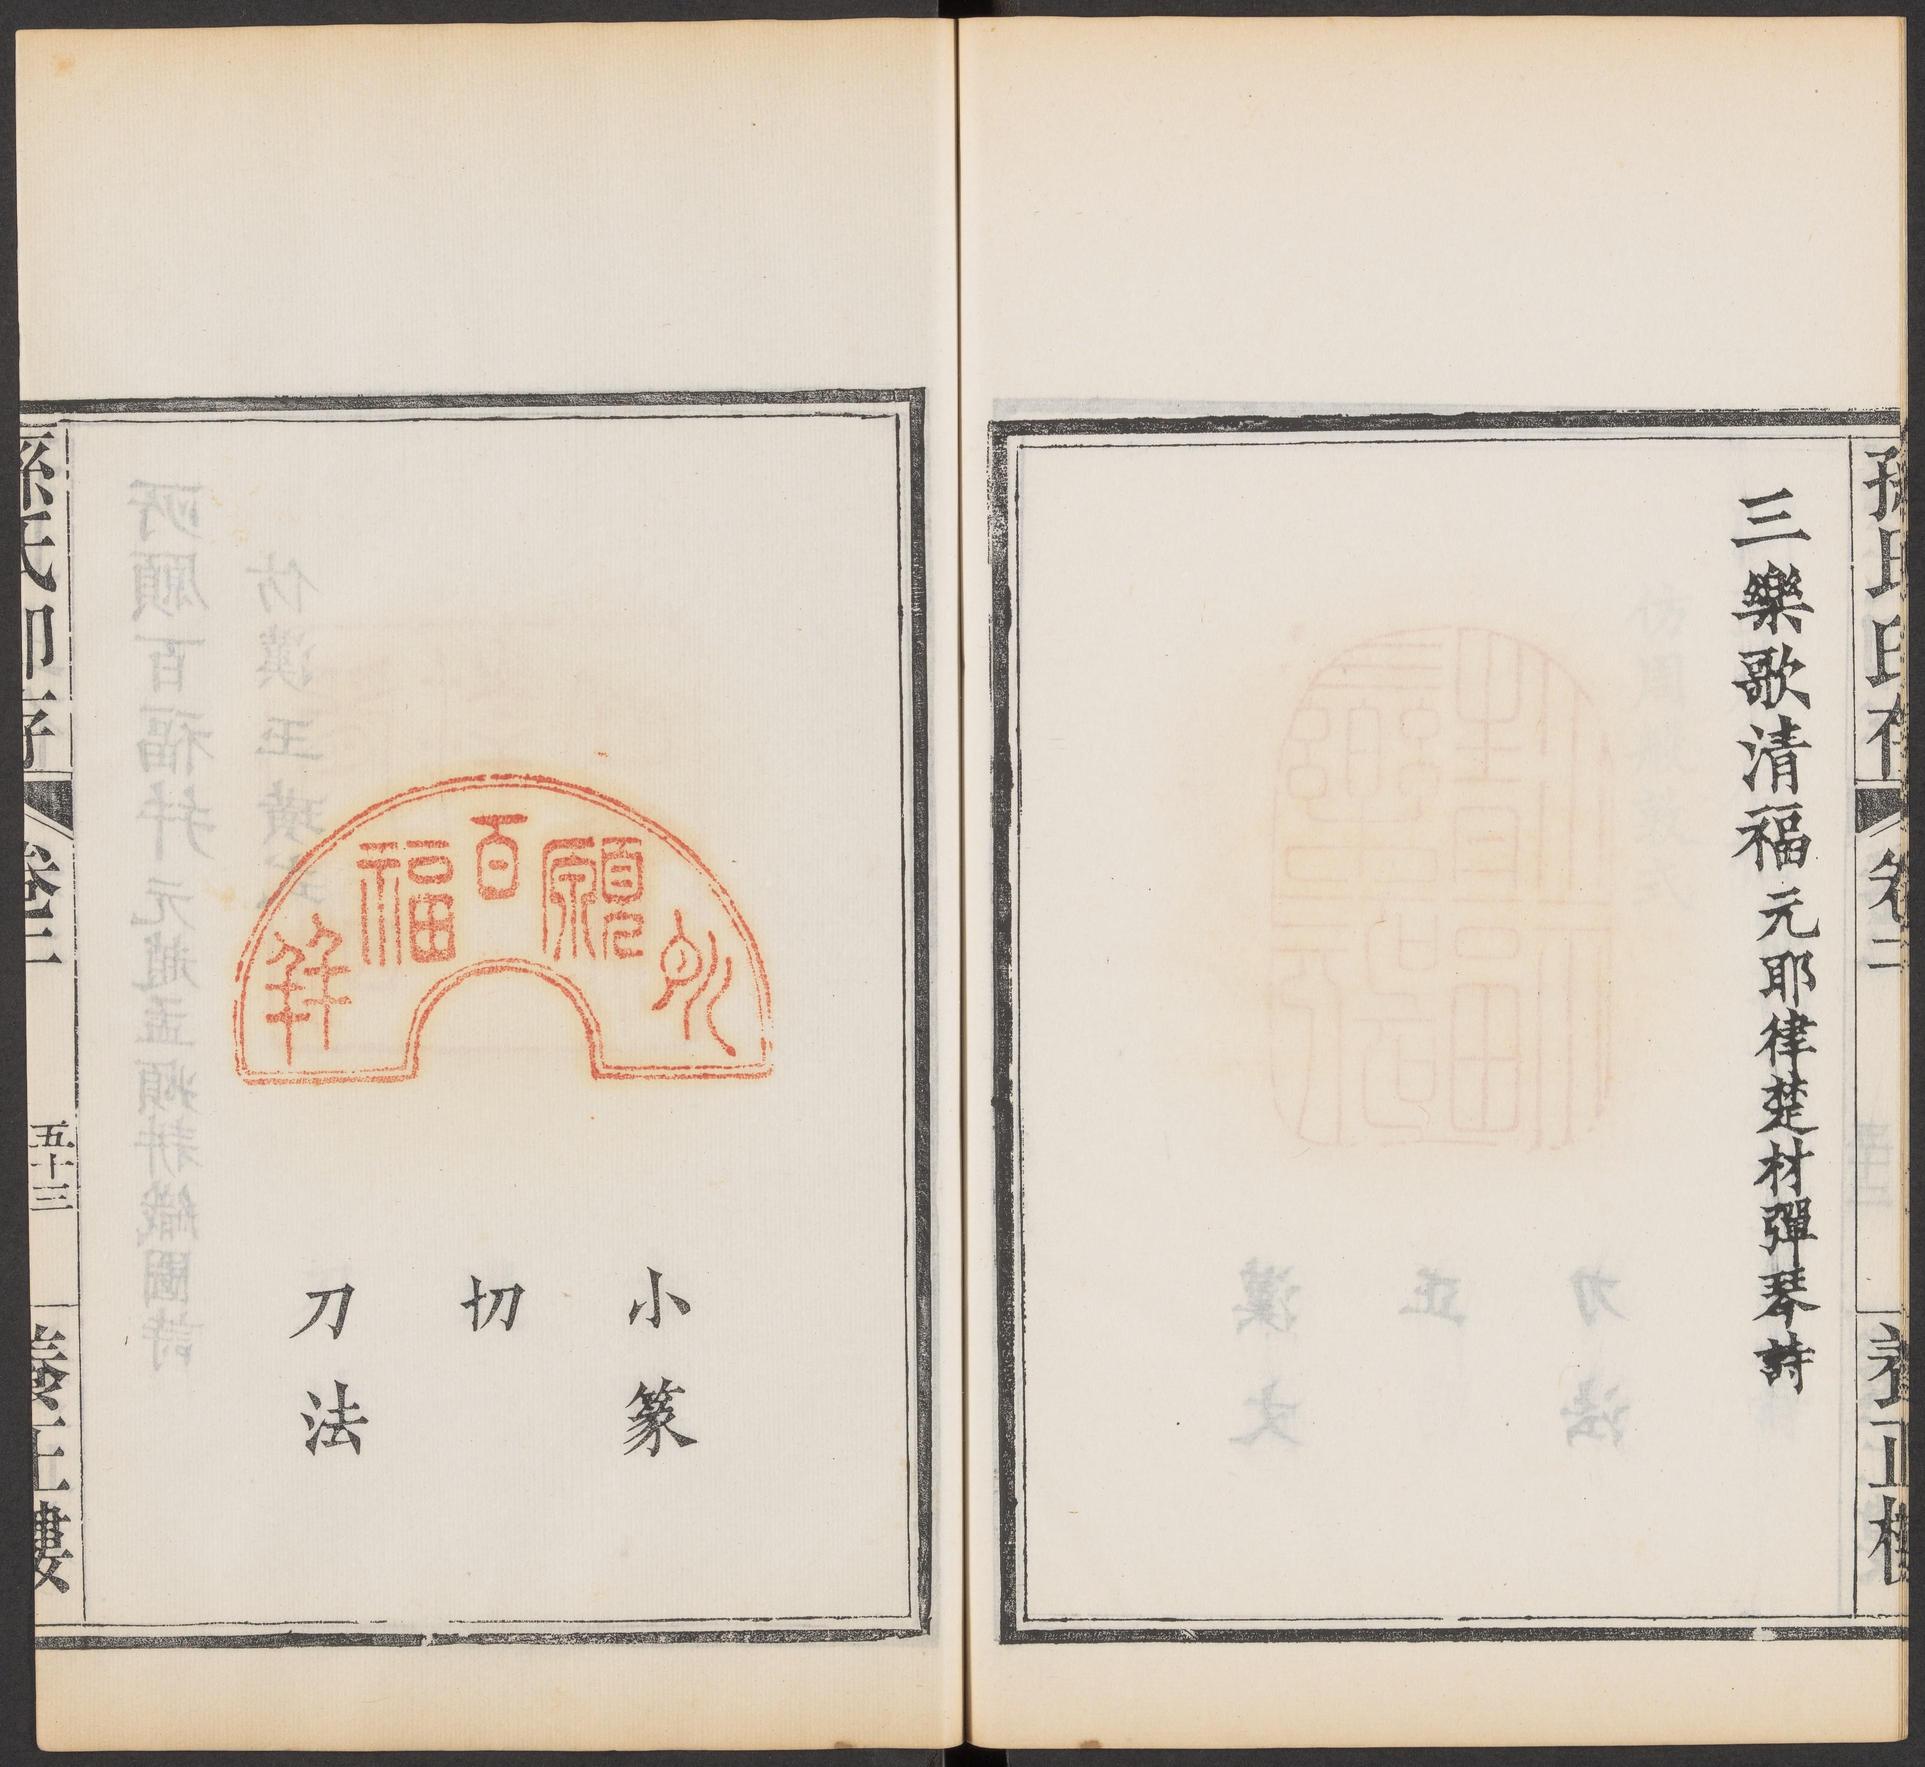 孫氏印存
卷二
養正樓
三樂歌清福元耶律楚材彈琴詩
所願百福幷
小篆
切
刀法
孫氏印存
卷二
五十三
養正樓